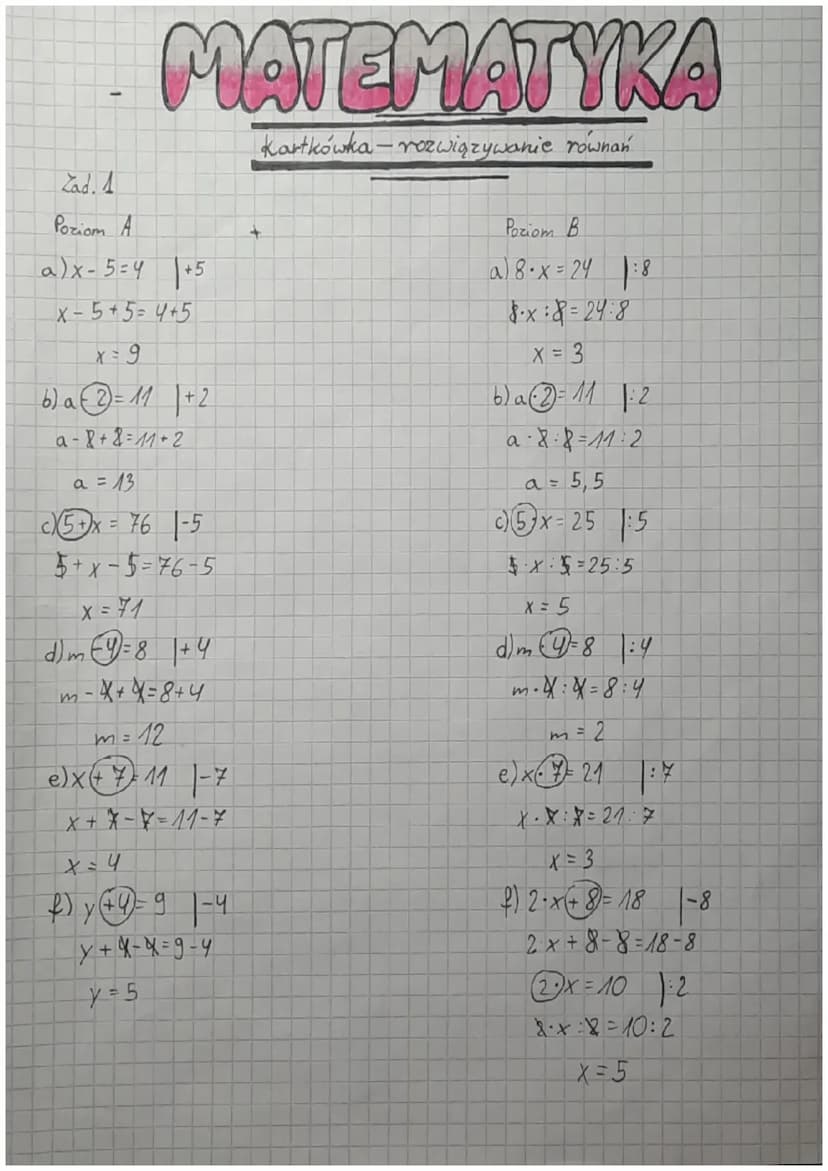 MATEMATYKA
Kartkówka – rozwiązywanie równań
Zad. 1
Poziom A
a) x - 5 = 4 |+5
x - 5 + 5 = 4+5
x = 9
b) a - 2 = 11 |+2
a - 2 + 2 = 11 + 2
a = 13
c) 5 + x = 76 |-5
5 + x - 5 = 76 - 5
x = 71
d) m - 4 = 8 |+4
m - 4 + 4 = 8+4
m = 12
e) x + 7 = 11 |-7
x + 7 - 7 = 11 - 7
x = 4
f) y + 4 = 9 |-4
y + 4 - 4 = 9 - 4
y = 5
Poziom B
a) 8 · x = 24 |:8
8 · x : 8 = 24 : 8
x = 3
b) a · 2 = 11 |:2
a · 2 : 2 = 11 : 2
a = 5,5
c) 5 · x = 25 |:5
5 · x : 5 = 25 : 5
x = 5
d) m · 4 = 8 |:4
m · 4 : 4 = 8 : 4
m = 2
e) x · 7 = 21 |:7
x · 7 : 7 = 21 : 7
x = 3
f) 2 · x + 8 = 18 |-8
2 x + 8 - 8 = 18 - 8
2 · x = 10 |:2
2 · x : 2 = 10 : 2
x = 5